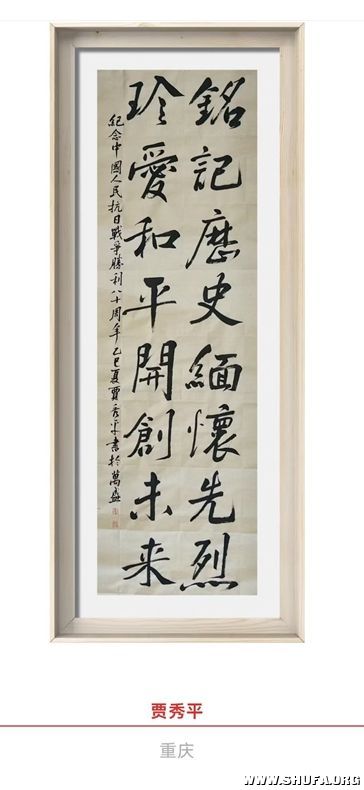 銘記歷史緬懷先烈
珍愛和平開創未来
紀念中國人民抗日戰爭勝利八十周年乙巳夏賈秀平書於萬盛
贾秀平
重庆
WWW.SHUFA.ORG